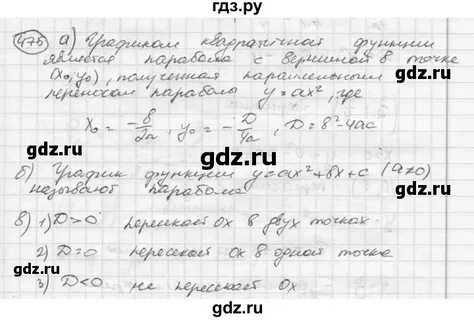 гдз.ру
475 а) Графиком квадратичной функции
является парабола с вершиной в точке
(x₀;y₀), полученная параллельным
переносом парабола y=ax², где
x₀ = -в/2a, y₀ = -D/4a, D=в²-4ac
б) График функции y=ax²+вx+c (a≠0)
называют парабола
в) 1) D>0 пересекает Ox в двух точках
2) D=0 пересекает Ox в одной точке
3) D<0 не пересекает Ox
гдз.ру
гдз.ру